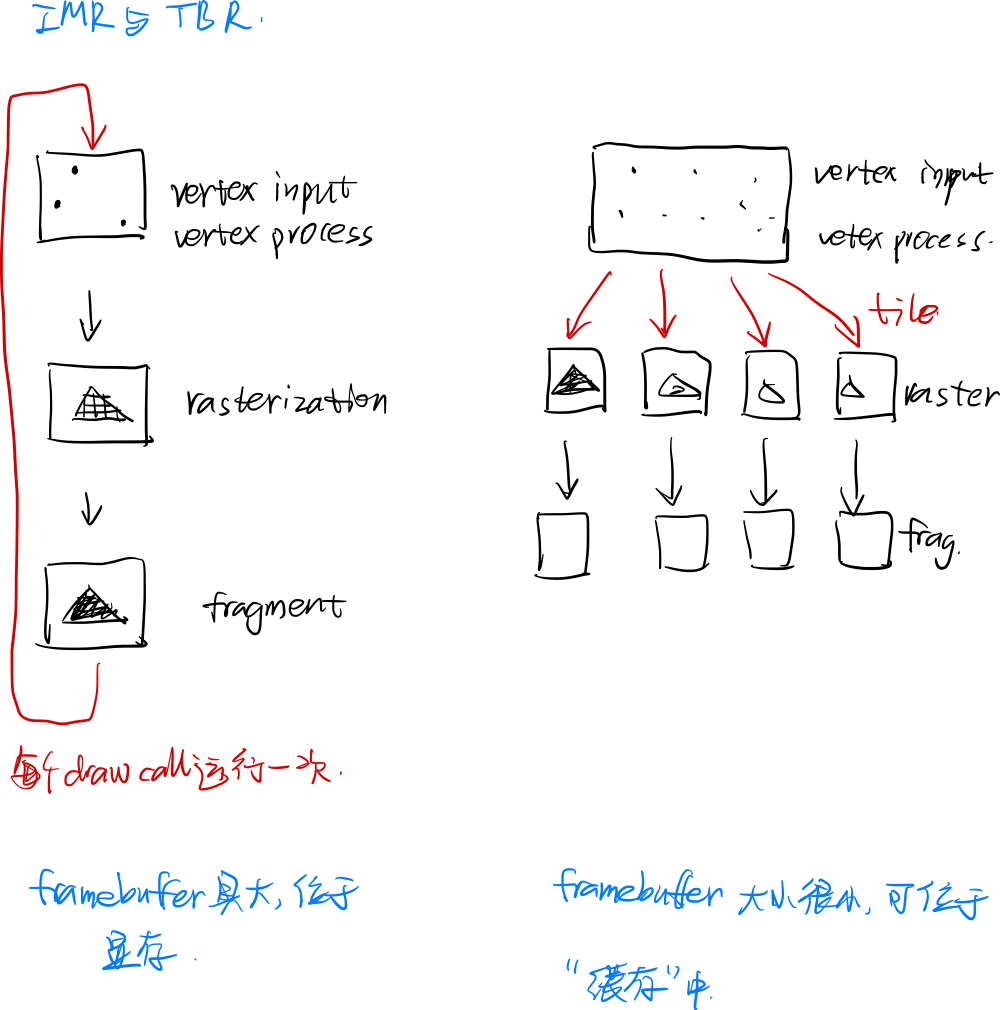 IMR与TBR.
vertex input
vertex process
rasterization
fragment
每个draw call运行一次.
framebuffer 具大,位于
显存.
vertex input
vetex process.
tile
raster
frag.
framebuffer 大小很小,可位于
“缓存”中.